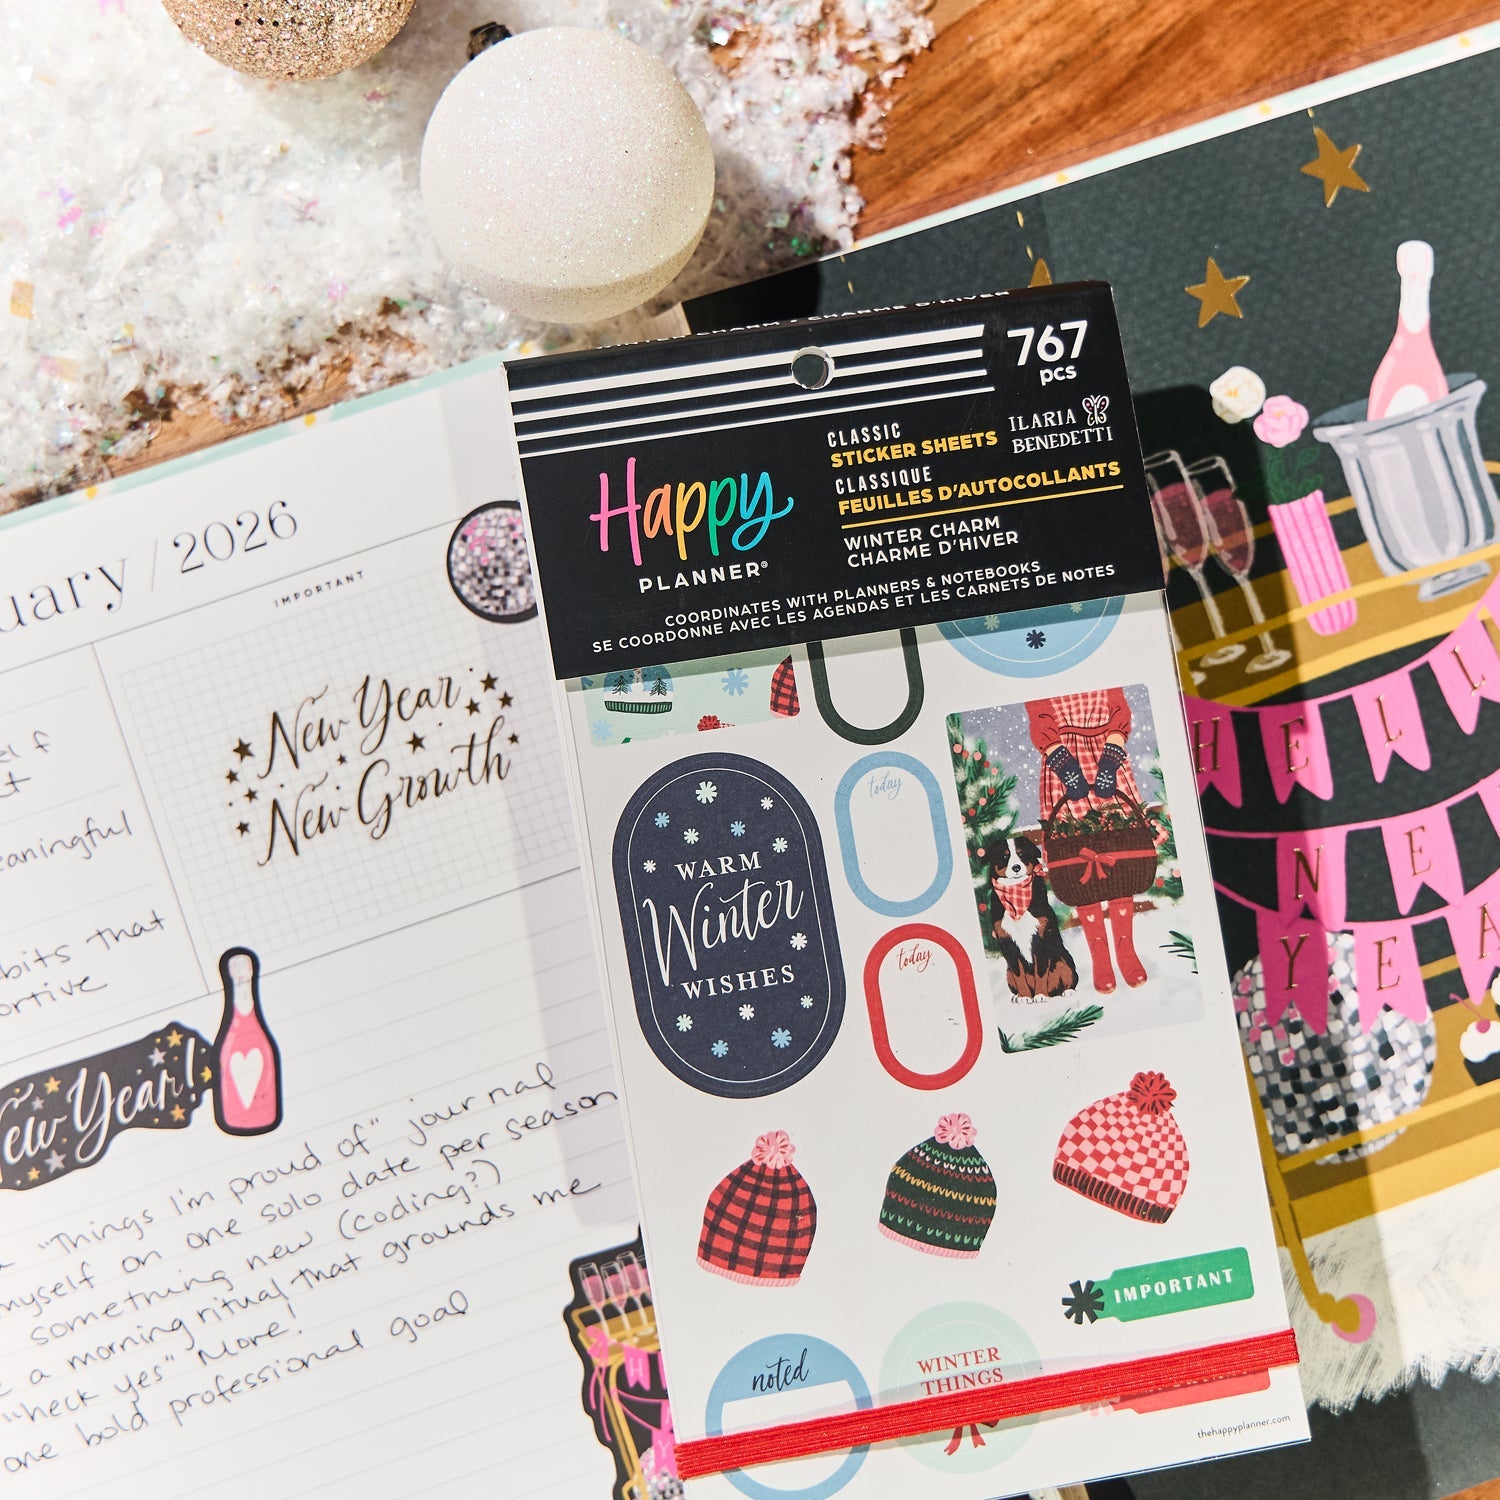 767
pcs
CLASSIC
STICKER SHEETS
CLASSIQUE
FEUILLES D'AUTOCOLLANTS
ILARIA
BENEDETTI
WINTER CHARM
CHARME D'HIVER
Happy
PLANNER®
COORDINATES WITH PLANNERS & NOTEBOOKS
SE COORDONNE AVEC LES AGENDAS ET LES CARNETS DE NOTES
today
today
WARM
Winter
WISHES
IMPORTANT
noted
WINTER
THINGS
thehappyplanner.com
/2026
IMPORTANT
New Year
New Growth
that
Year!
"Things I'm proud of" journal
myself on one solo date per season
something new (coding?)
a morning ritual that grounds me
"heck yes" More!
one bold professional goal
HELL
NE
YEA